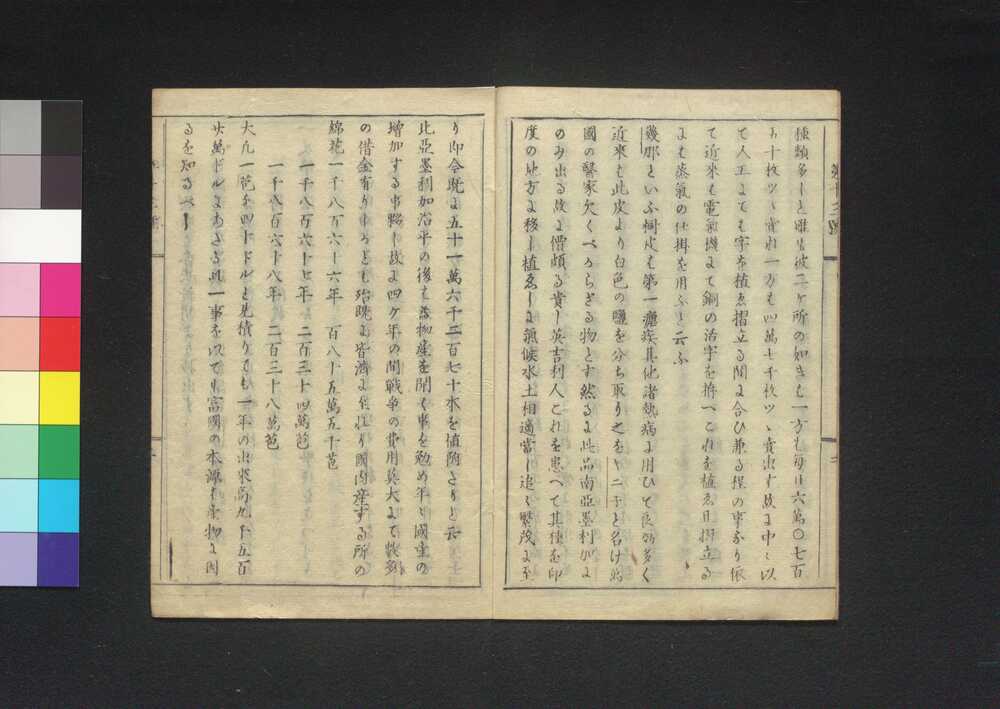 種類多しと雖も彼二ケ所の如きも一方も毎日六萬〇七百
五十枚ツヽ賣れ一方も四萬七千枚ツヽ賣出す故に中々以
て人工にても字を植ゑ摺立る間に合ひ兼る程の事なり依
て近來も電氣機にて銅の活字を拵へこれを植ゑ且摺立る
にも蒸氣の仕掛を用ふと云ふ
幾那といふ樹皮も第一瘧疾其他諸熱病に用ひて良効多く
近來も此皮より白色の鹽を分ち取り之をキニーネと名け
國の醫家欠くべからざる物とす然るに此品南亞墨利加に
のみ出る故に價頗る貴し英吉利人これを患へて其種を印
度の地方に移し植ゑしに氣候水土相適當し追々繁茂に至
り即今既に五十一萬六千二百七十本を植附たりと云
北亞墨利加治平の後も益物産を開く事を勉め年々國産の
増加する事夥し故に四ケ年の間戰爭の費用莫大にて許多
の借金有り中々とも殆既に皆濟に至れり國内産する所の
綿花一千八百六十六年 百八十五萬五千苞
一千八百六十七年 二百三十四萬苞
一千八百六十八年 二百三十八萬苞
大凡一苞を四十ドルと見積りても一年の出來高九千五百
廿萬ドルにあたる此一事を以ても富國の本源も産物に因
るを知るべし